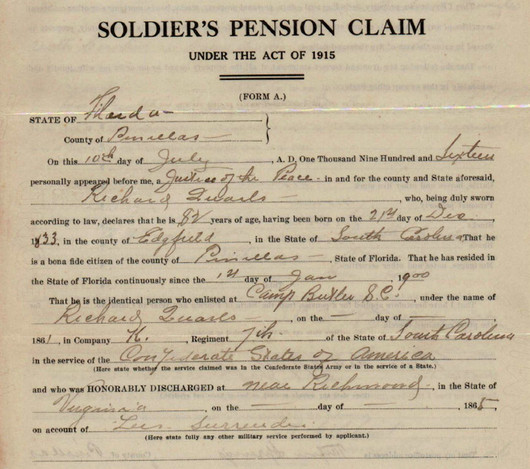 SOLDIER'S PENSION CLAIM
UNDER THE ACT OF 1915
(FORM A.)
STATE OF Florida
County of Pinellas
On this 10th day of July, A. D. One Thousand Nine Hundred and Sixteen
personally appeared before me, a Justice of the Peace in and for the county and State aforesaid,
Richard Quarls, who, being duly sworn
according to law, declares that he is 82 years of age, having been born on the 21st day of Dec,
1833, in the county of Edgfield, in the State of South Carolina That he
is a bona fide citizen of the county of Pinellas, State of Florida. That he has resided
in the State of Florida continuously since the 1st day of Jan 1900
That he is the identical person who enlisted at Camp Butler S.C., under the name of
Richard Quarls, on the — day of —
1861, in Company K., Regiment 7th of the State of South Carolina
in the service of the Confederate States of America
(Here state whether the service claimed was in the Confederate States Army or in the service of a State.)
and who was HONORABLY DISCHARGED at near Richmond, in the State of
Virginia, on the — day of —, 1865,
on account of Lees Surrender.
(Here state fully any other military service performed by applicant.)